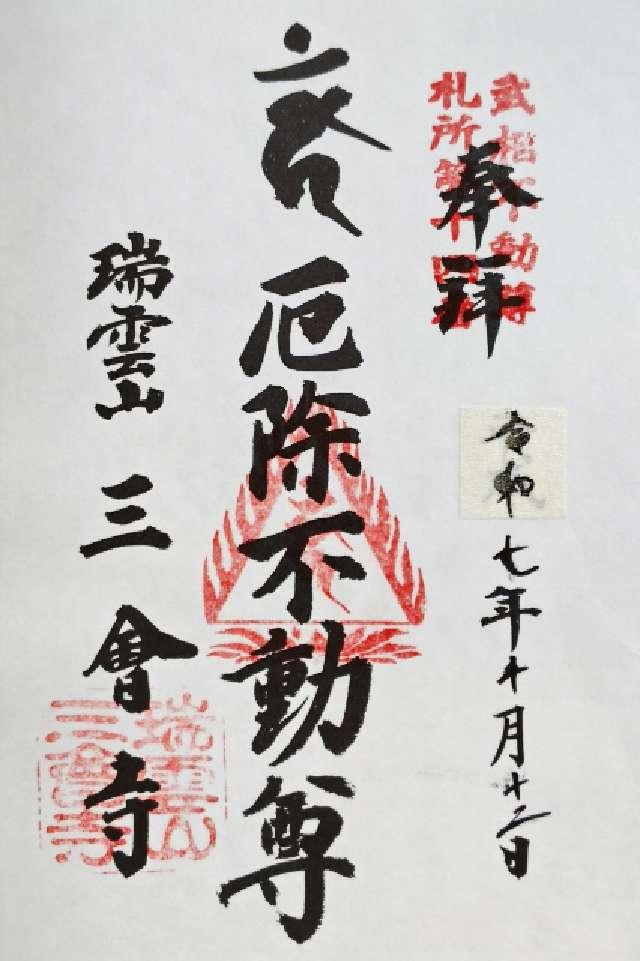 奉拝
武相不動尊
札所第十四番
令和
七年十月十二日
厄除不動尊
瑞雲山 三會寺
瑞雲山
三會寺